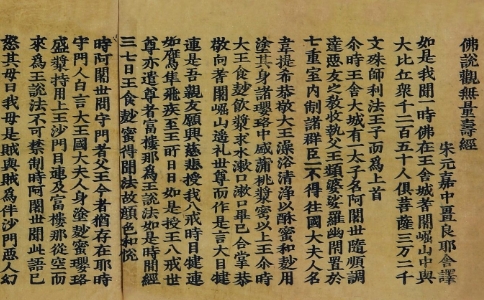 佛說觀無量壽經
宋元嘉中畺良耶舍譯
如是我聞一時佛在王舍城耆闍崛山中與
大比丘眾千二百五十人俱菩薩三万二千
文殊師利法王子而為上首
尒時王舍大城有一太子名阿闍世隨順調
達惡友之教收執父王頻婆娑羅幽閉置於
七重室內制諸群臣一不得往國大夫人名
韋提希恭敬大王澡浴清淨以酥蜜和麨用
塗其身諸瓔珞中盛蒲桃漿密以上王尒時
大王食麨飲漿求水漱口漱口畢已合掌恭
敬向耆闍崛山遥礼世尊而作是言大目揵
連是吾親友願興慈悲授我八戒時目揵連
如鷹隼飛疾至王所日日如是授王八戒世
尊亦遣尊者富樓那為王說法如是時間經
三七日王食麨蜜得聞法故顏色和悅
時阿闍世問守門者父王今者猶存在耶時
守門人白言大王國大夫人身塗麨蜜瓔珞
盛漿持用上王沙門目連及富樓那從空而
來為王說法不可禁制時阿闍世聞此語已
怒其母曰我母是賊與賊為伴沙門惡人幻